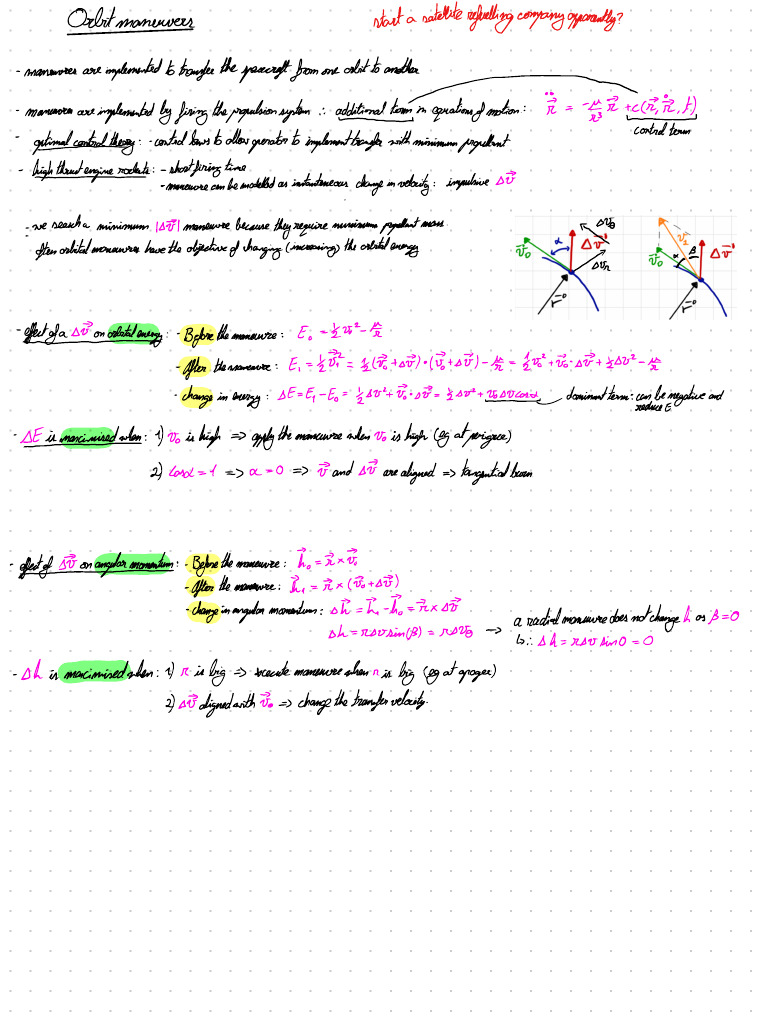 Orbit maneuvers
start a satellite refuelling company apparently?
- maneuvres are implemented to transfer the spacecraft from one orbit to another
- maneuvres are implemented by firing the propulsion system ∴ additional term in equations of motion: r̈⃗ = -μ/r³ r⃗ + c(r⃗, ṙ⃗, t)
control term
- optimal control theory: - control laws to allow operator to implement transfer with minimum propellant
- high thrust engine rockets: - short firing time
- maneuvre can be modelled as instantaneous change in velocity: impulsive Δv⃗
- we search a minimum |Δv⃗| maneuvre because they require minimum propellant mass
Often orbital maneuvres have the objective of changing (increasing) the orbital energy
v⃗₀ α Δv⃗ Δv_θ Δv_r r⃗₀
v⃗₁ v⃗₀ α β Δv⃗ r⃗₀
- effect of a Δv⃗ on orbital energy: - Before the maneuvre: E₀ = ½v² - μ/r
- After the maneuvre: E₁ = ½v⃗₁² = ½(v⃗₀+Δv⃗)•(v⃗₀+Δv⃗) - μ/r = ½v₀² + v⃗₀•Δv⃗ + ½Δv² - μ/r
- change in energy: ΔE = E₁ - E₀ = ½Δv² + v⃗₀•Δv⃗ = ½Δv² + v₀Δv cosα
dominant term: can be negative and
reduce E
- ΔE is maximised when: 1) v₀ is high => apply the maneuvre when v₀ is high (eg at perigee)
2) cosα = 1 => α = 0 => v⃗ and Δv⃗ are aligned => tangential burn
- effect of Δv⃗ on angular momentum: - Before the maneuvre: h⃗₀ = r⃗ × v⃗₀
- After the maneuvre: h⃗₁ = r⃗ × (v⃗₀+Δv⃗)
- change in angular momentum: Δh⃗ = h⃗₁ - h⃗₀ = r⃗ × Δv⃗
Δh = rΔv sin(β) = rΔv_θ → a radial maneuvre does not change h as β=0
↳ ∴ Δh = rΔv sin0 = 0
- Δh is maximised when: 1) r is big => execute maneuvre when r is big (eg at apogee)
2) Δv⃗ aligned with v⃗₀ => change the transfer velocity.